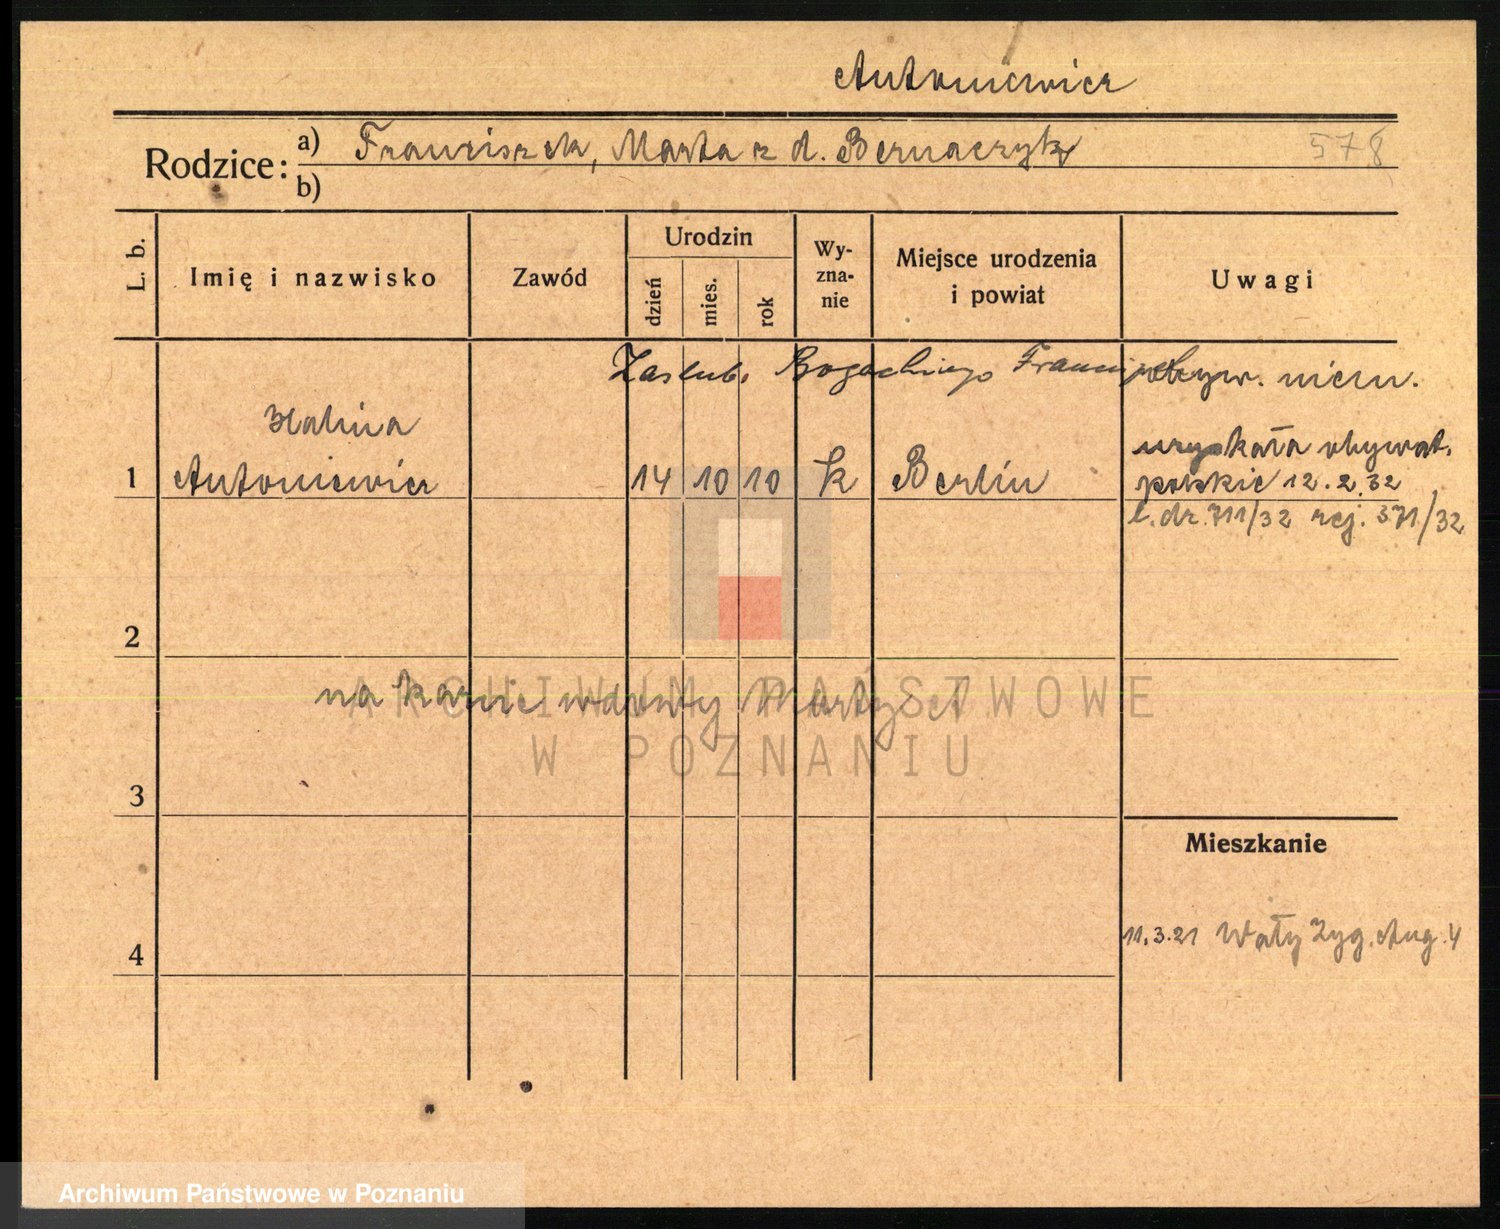 Antoniewicz
Rodzice:
a) Franciszek, Marta z d. Bernaczyk
578
b)
L. b.
Imię i nazwisko
Zawód
Urodzin
dzień
mies.
rok
Wy-
zna-
nie
Miejsce urodzenia
i powiat
Uwagi
Zaślub. Bogackiego Franciszka
obyw. niem.
1
Halina
Antoniewicz
14 10 10
k
Berlin
uzyskała obywat.
polskie 12.2.32
l.dz. 711/32 rej. 371/32
2
na karcie wdowy Marty
ARCHIWUM PAŃSTWOWE
W POZNANIU
3
Mieszkanie
4
11.3.21 Wały Zyg. Aug. 4
Archiwum Państwowe w Poznaniu